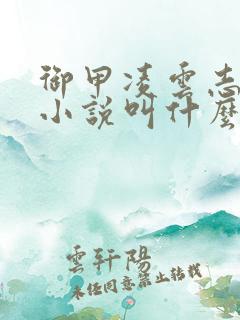 御甲凌雲志
小說叫什麼
雲軒陽
未经同意禁止转载